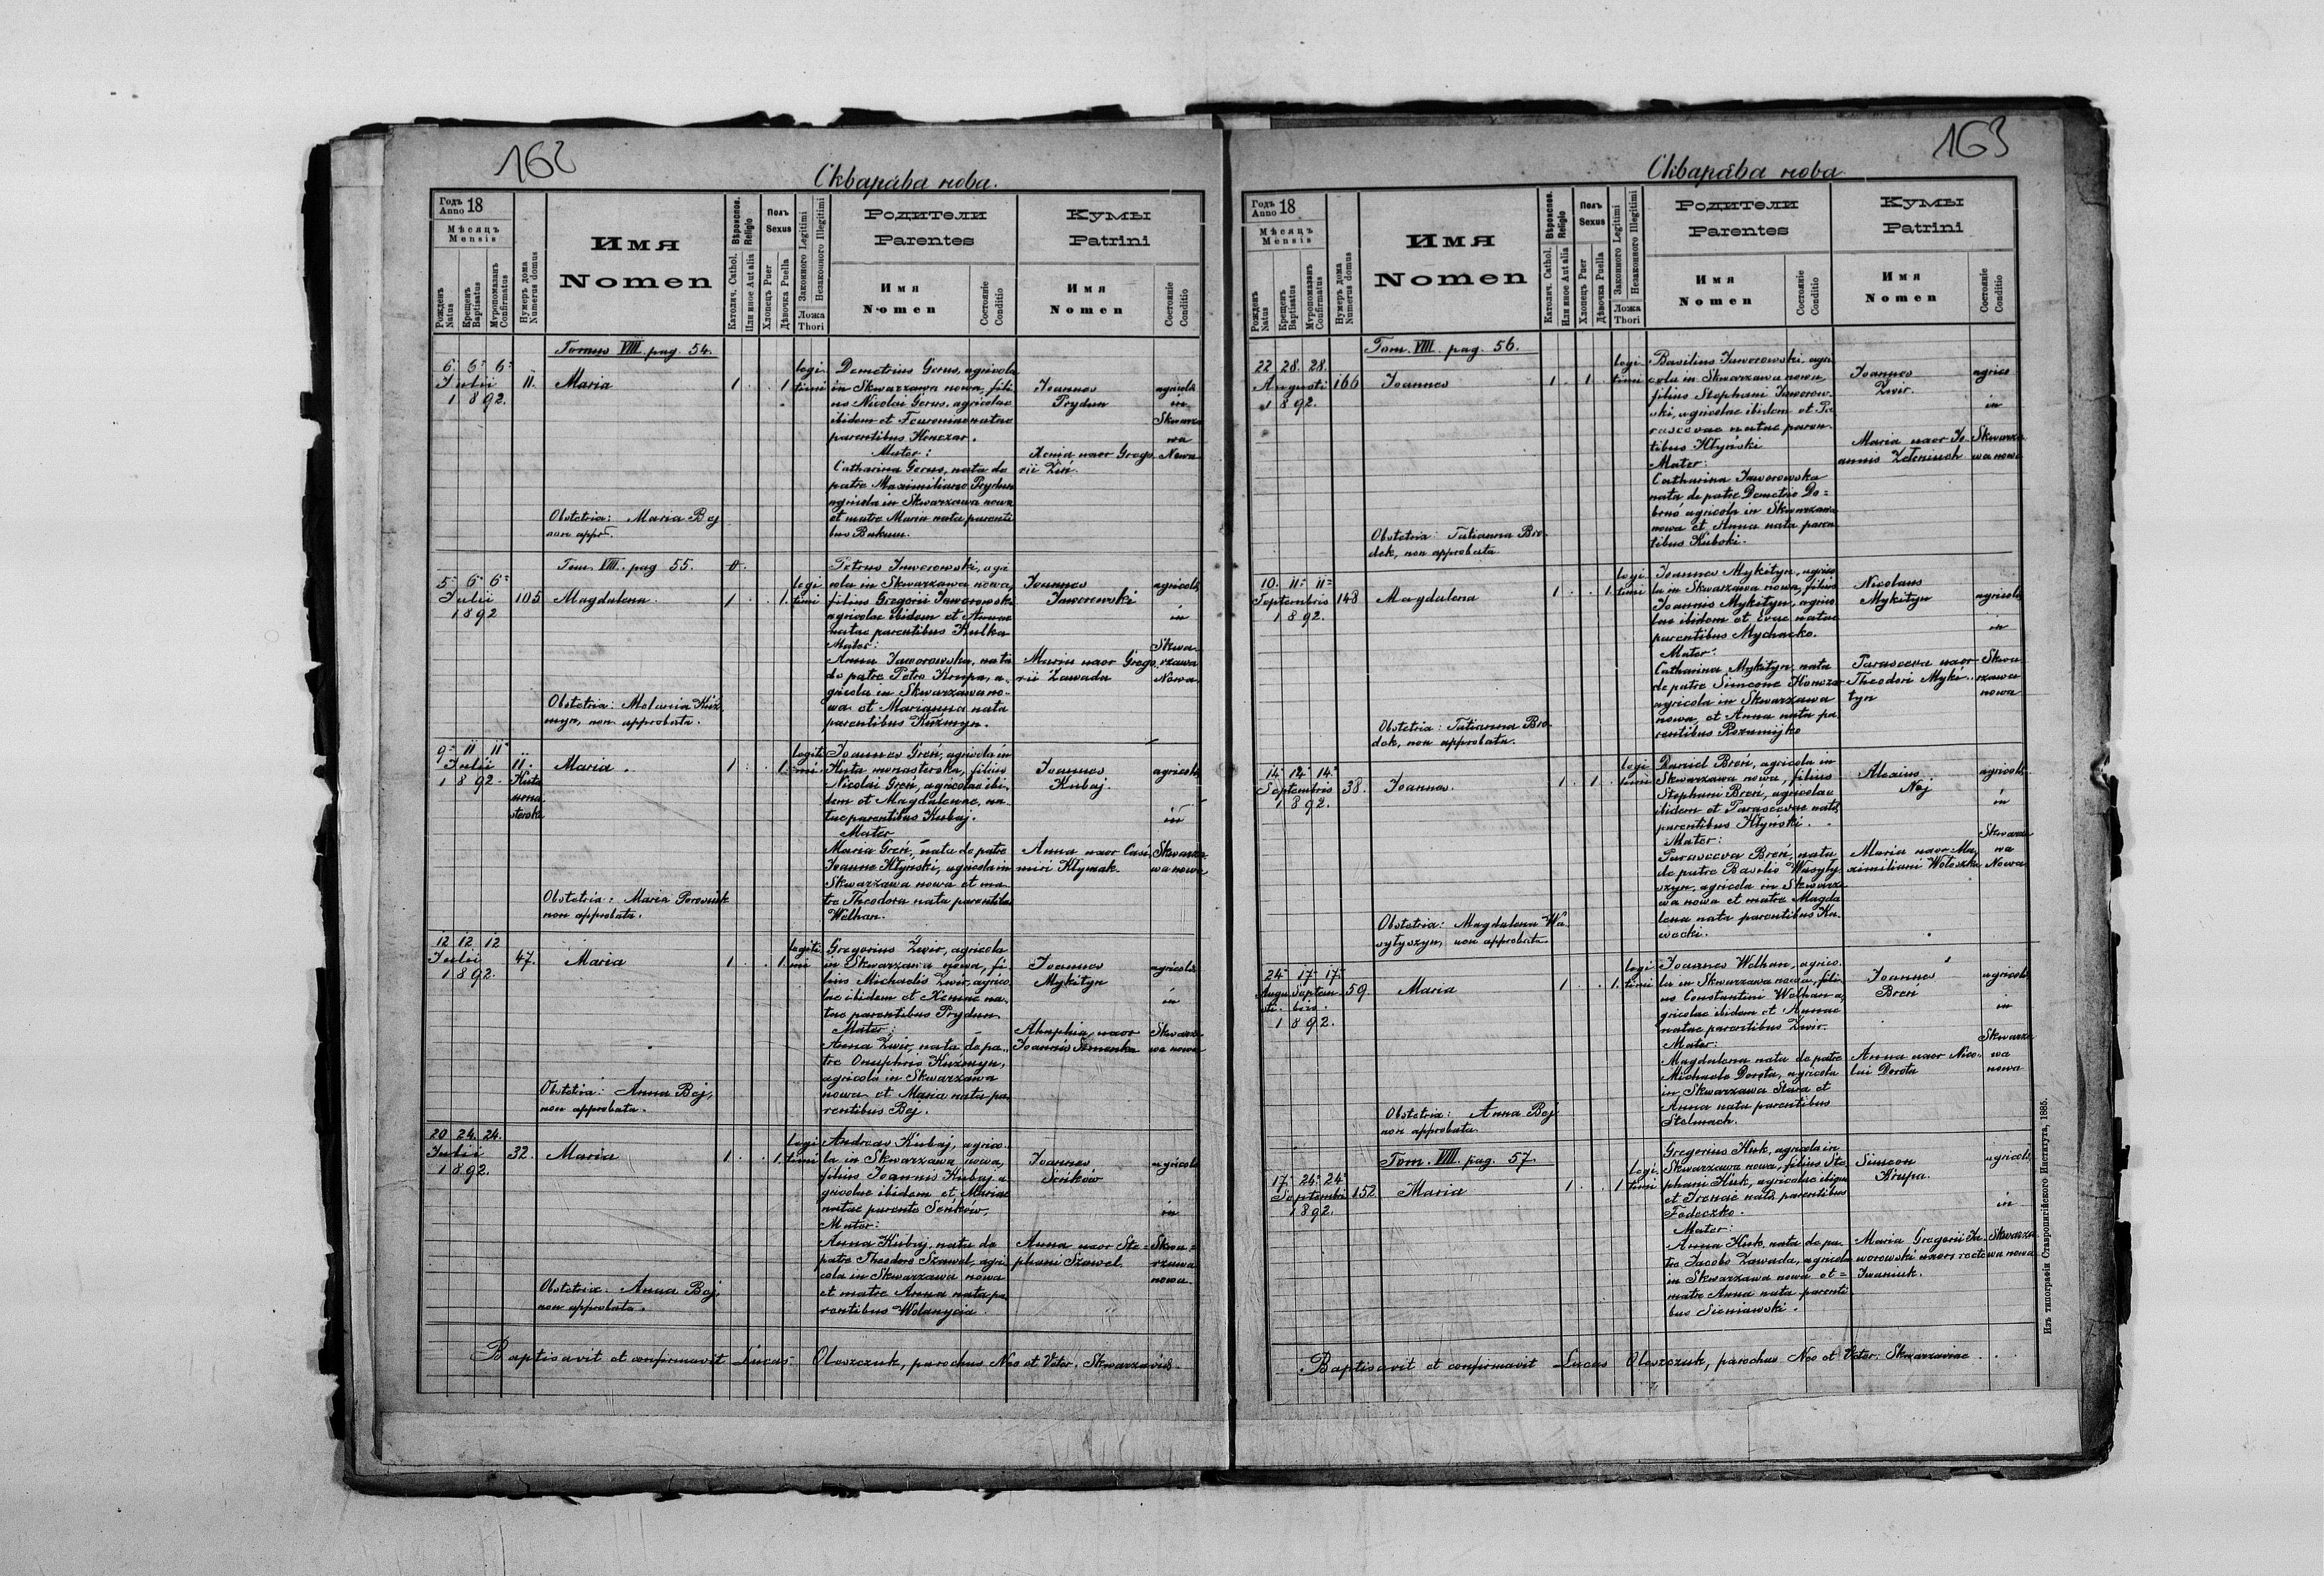 162
Скварѧва нова.
Годъ Anno 18
Мѣсяцъ Mensis
Рожденъ Natus
Крещенъ Baptisatus
Мѵропомазанъ Confirmatus
Нумеръ дома Numerus domus
Имя
Nomen
Вѣроиспов. Religio
Католич. Cathol.
Или иное Aut alia
Полъ Sexus
Хлопецъ Puer
Дѣвочка Puella
Законного Legitimi
Незаконного Illegitimi
Ложа Thori
Родители
Parentes
Имя Nomen
Состояніе Conditio
Кумы
Patrini
Имя Nomen
Состояніе Conditio
Tomus VIII. pag. 54.
6. 6. 6.
Julii
1892.
11.
Maria
1 . . 1
legi-
timi
Demetrius Gerus, agricola
in Skwarzawa nowa, fili-
us Nicolai Gerus, agricolae
ibidem et natae
parentibus Konczar.
Mater:
Catharina Gerus, nata de
patre Maximiliano Prydun
agricola in Skwarzawa nowa
et matre Maria nata parenti
bus
Joannes
Prydun
Xenia uxor Grego-
rii
agricola
in
Skwarza
wa
Nowa
Obstetrix: Maria Bej
non appr.
Tom. VIII. pag 55.
5 6 6
Julii
1892
105
Magdalena.
1 . . 1.
legi
timi
Petrus Jaworowski, agri
cola in Skwarzawa nowa,
filius Gregorii Jaworowski
agricolae ibidem et Annae
natae parentibus Kulka
Mater:
Anna Jaworowska, nata
de patre Petro Krupa, a-
gricola in Skwarzawa no-
wa et Marianna nata
parentibus Kuźmyn.
Joannes
Jaworowski
Maria uxor Grego-
rii Zawada
agricola
in
Skwa-
rzawa
Nowa
Obstetrix: Melania Kuź
myn, non approbata.
9 11 11
Julii
1892
11.
Huta
mona
sterska
Maria.
1 . . 1.
legiti
mi
Joannes Greń, agricola in
Huta monasterska, filius
Nicolai Greń, agricolae ibi-
dem et Magdalenae, na-
tae parentibus Kubaj.
Mater
Maria Greń, nata de patre
Joanne Kłyński, agricola in
Skwarzawa nowa et ma-
tre Theodora nata parentibus
Welhan.
Joannes
Kubaj.
Anna uxor Casi-
miri Klymak.
agricola
in
Skwarza
wa nowa
Obstetrix: Maria
non approbata.
12 12 12
Julii
1892.
47.
Maria
1 . . 1.
legiti
mi
Gregorius Żwir, agricola
in Skwarzawa nowa, fi-
lius Michaelis Żwir, agrico
lae ibidem et Xeniae na-
tae parentibus Prydun
Mater:
Anna Żwir, nata de pa-
tre Onuphrio Kuźmyn,
agricola in Skwarzawa
nowa et Maria nata pa-
rentibus Bej.
Joannes
Mykityn
Ahaphia uxor
Joannis Semenka
agricola
in
Skwarza
wa nowa
Obstetrix: Anna Bej,
non approbata.
20 24. 24.
Julii
1892.
32.
Maria
1. . . 1.
legi
timi
Andreas Kubaj, agrico-
la in Skwarzawa nowa,
filius Joannis Kubaj a-
gricolae ibidem et Mariae
natae parente Senków,
Mater:
Anna Kubaj, nata de
patre Theodoro Szawel, agri
cola in Skwarzawa nowa
et matre Anna nata pa-
rentibus Wolanycia
Joannes
Senków
Anna uxor Ste=
phani Szawel.
agricola
in
Skwa=
rzawa
nowa.
Obstetrix: Anna Bej,
non approbata.
Baptisavit et confirmavit Lucas Oloszczuk, parochus Neo et Veter. Skwarzaviae
163
Скварѧва нова
Годъ Anno 18
Мѣсяцъ Mensis
Рожденъ Natus
Крещенъ Baptisatus
Мѵропомазанъ Confirmatus
Нумеръ дома Numerus domus
Имя
Nomen
Вѣроиспов. Religio
Католич. Cathol.
Или иное Aut alia
Полъ Sexus
Хлопецъ Puer
Дѣвочка Puella
Законного Legitimi
Незаконного Illegitimi
Ложа Thori
Родители
Parentes
Имя Nomen
Состояніе Conditio
Кумы
Patrini
Имя Nomen
Состояніе Conditio
Tom. VIII. pag. 56.
22 28. 28.
Augusti
1892.
166
Joannes
1 . 1 .
legi
timi
Basilius Jaworowski agri
cola in Skwarzawa nowa,
filius Stephani Jaworow-
ski, agricolae ibidem et Pa
rascevae natae paren-
tibus Kłyński
Mater:
Catharina Jaworowska
nata de patre Demetrio Do=
broś agricola in Skwarzawa
nowa et Anna nata paren
tibus Kuboki.
Joannes
Żwir.
Maria uxor Jo-
annis Zeleniuch
agrico
in
Skwarza
wa nowa
Obstetrix: Tatianna Bro-
dek, non approbata
10. 11 11
Septembris
1892.
148
Magdalena
1. . . 1.
legi
timi
Joannes Mykityn, agrico
la in Skwarzawa nowa, filius
Joannis Mykityn, agrico
lae ibidem et Evae natae
parentibus Mychacko.
Mater:
Catharina Mykityn, nata
de patre Simeone Konczar
agricola in Skwarzawa
nowa, et Anna nata pa
rentibus Rozumijko
Nicolaus
Mykityn
Parasceva uxor
Theodori Myki-
tyn
agricola
in
Skwa
rzawa
nowa
Obstetrix: Tatianna Bro-
dek, non approbata.
14 14 14
Septembris
1892.
38.
Joannes.
1. . 1 .
legi
timi
Daniel Breń, agricola in
Skwarzawa nowa, filius
Stephani Breń, agricolae
ibidem et Parascevae natae
parentibus Kłyński.
Mater:
Parasceva Breń, nata
de patre Basilio Wasyly-
szyn, agricola in Skwarza
wa nowa et matre Magda
lena nata parentibus Ku-
wocki.
Alexius
Noj
Maria uxor Ma-
ximiliani Woloszka
agricola
in
Skwarza
wa
Nowa
Obstetrix: Magdalena Wa
sylyszyn, non approbata.
24 17 17
Augu Septem
sti bris
1892.
59.
Maria
1 . . 1.
legi
timi
Joannes Welhan, agrico-
la in Skwarzawa nowa, fili-
us Constantini Welhan a-
gricolae ibidem et Annae
natae parentibus Żwir.
Mater:
Magdalena nata de patre
Michaele Dorota, agricola
in Skwarzawa Stara et
Anna nata parentibus
Stelmach.
Joannes
Breń
Anna uxor Nico-
lai Dorota
agricola
in
Skwarza
wa
nowa
Obstetrix: Anna Bej
non approbata.
Tom. VIII. pag. 57.
17 24 24
Septembri
1892.
152
Maria
1. . . 1
legi
timi
Gregorius Kuk, agricola in
Skwarzawa nowa, filius Ste
phani Kuk, agricolae
et Irenae natae parentibus
Fedeczko.
Mater:
Anna Kuk, nata de pa-
tre Jacobo Zawada, agricola
in Skwarzawa nowa et=
matre Anna nata parenti
bus Sieniawski.
Simeon
Krupa.
Maria Gregorii Ja-
worowski uxor recte
Iwaniuk.
agricola
in
Skwarza
wa nowa
Baptisavit et confirmavit Lucas Oloszczuk, parochus Neo et Veter. Skwarzaviae
Изъ типографіи Ставропигійского Института, 1885.